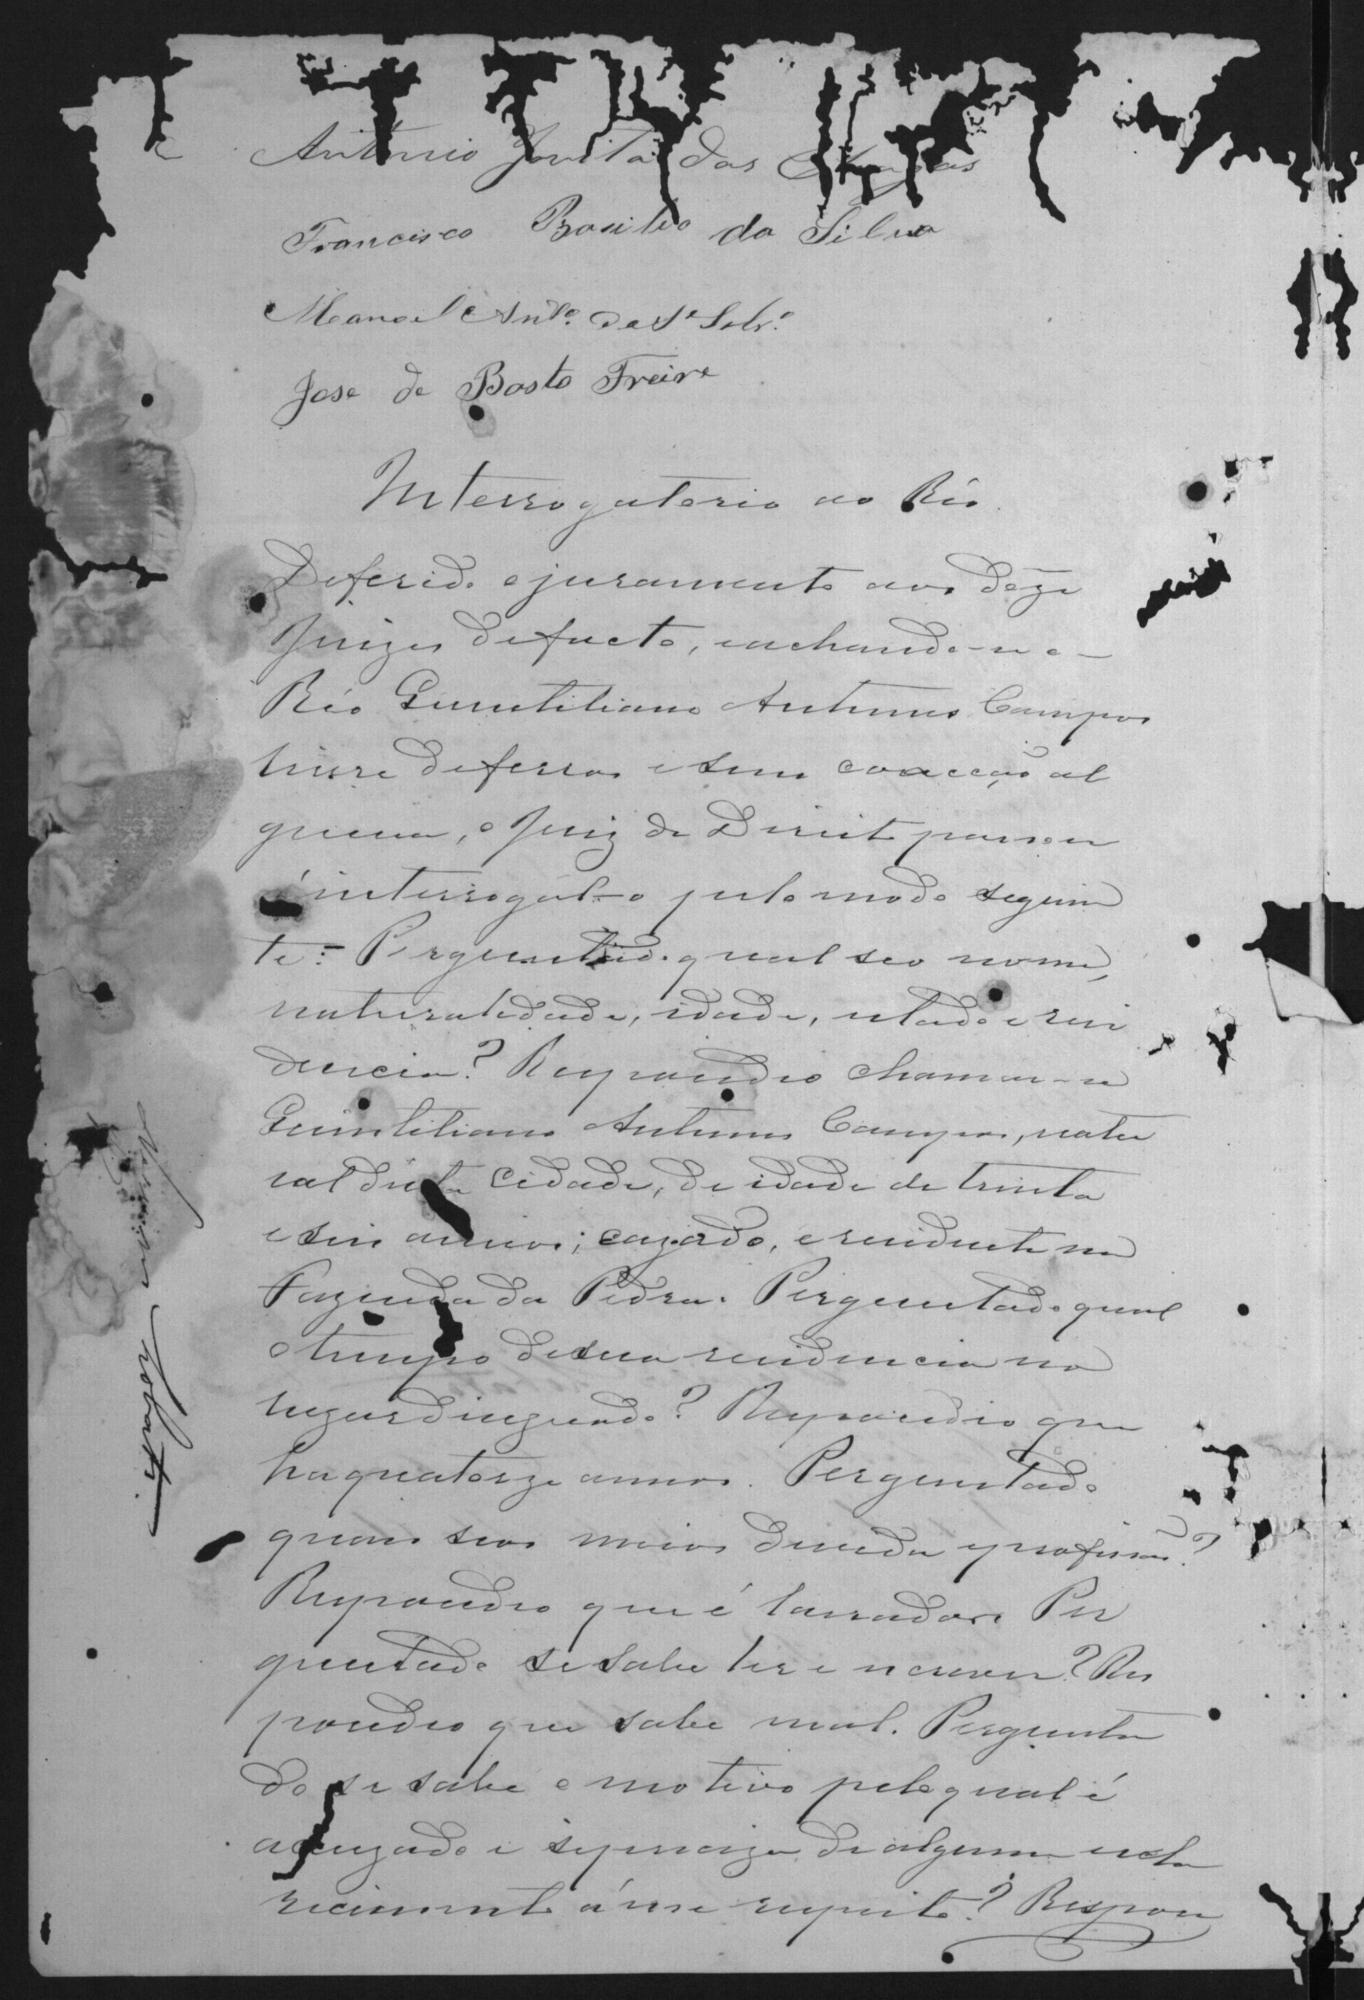 Antonio Jovita das Chagas
Francisco Basilio da Silva
Manoel Antº de Sª Sobrº
Jose de Basto Freire
Interrogatorio ao Réo.
Deferido o juramento aos doze
Juizes de facto, e achando-se o
Réo Quintiliano Antunes Campos
livre de ferros e sem coacção al
guma, o Juiz de Direito passou
á interrogal-o pelo modo seguin
te:- Perguntado qual seo nome,
naturalidade, idade, estado e resi
dencia? Respondeo chamar-se
Quintiliano Antunes Campos, natu
ral desta cidade, de idade de trinta
e seis annos; cazado, e residente na
Fazenda da Pedra. Perguntado qual
o tempo de sua residencia no
lugar designado? Respondeo que
ha quatorze annos. Perguntado
quaes seos meios de vida e profissão?
Respondeo que é lavrador. Per
guntado se sabe ler e escrever? Res
pondeo que sabe mal. Pergunta
do se sabe o motivo pelo qual é
accuzado e se preciza de algum escla
recimento á esse respeito? Respon